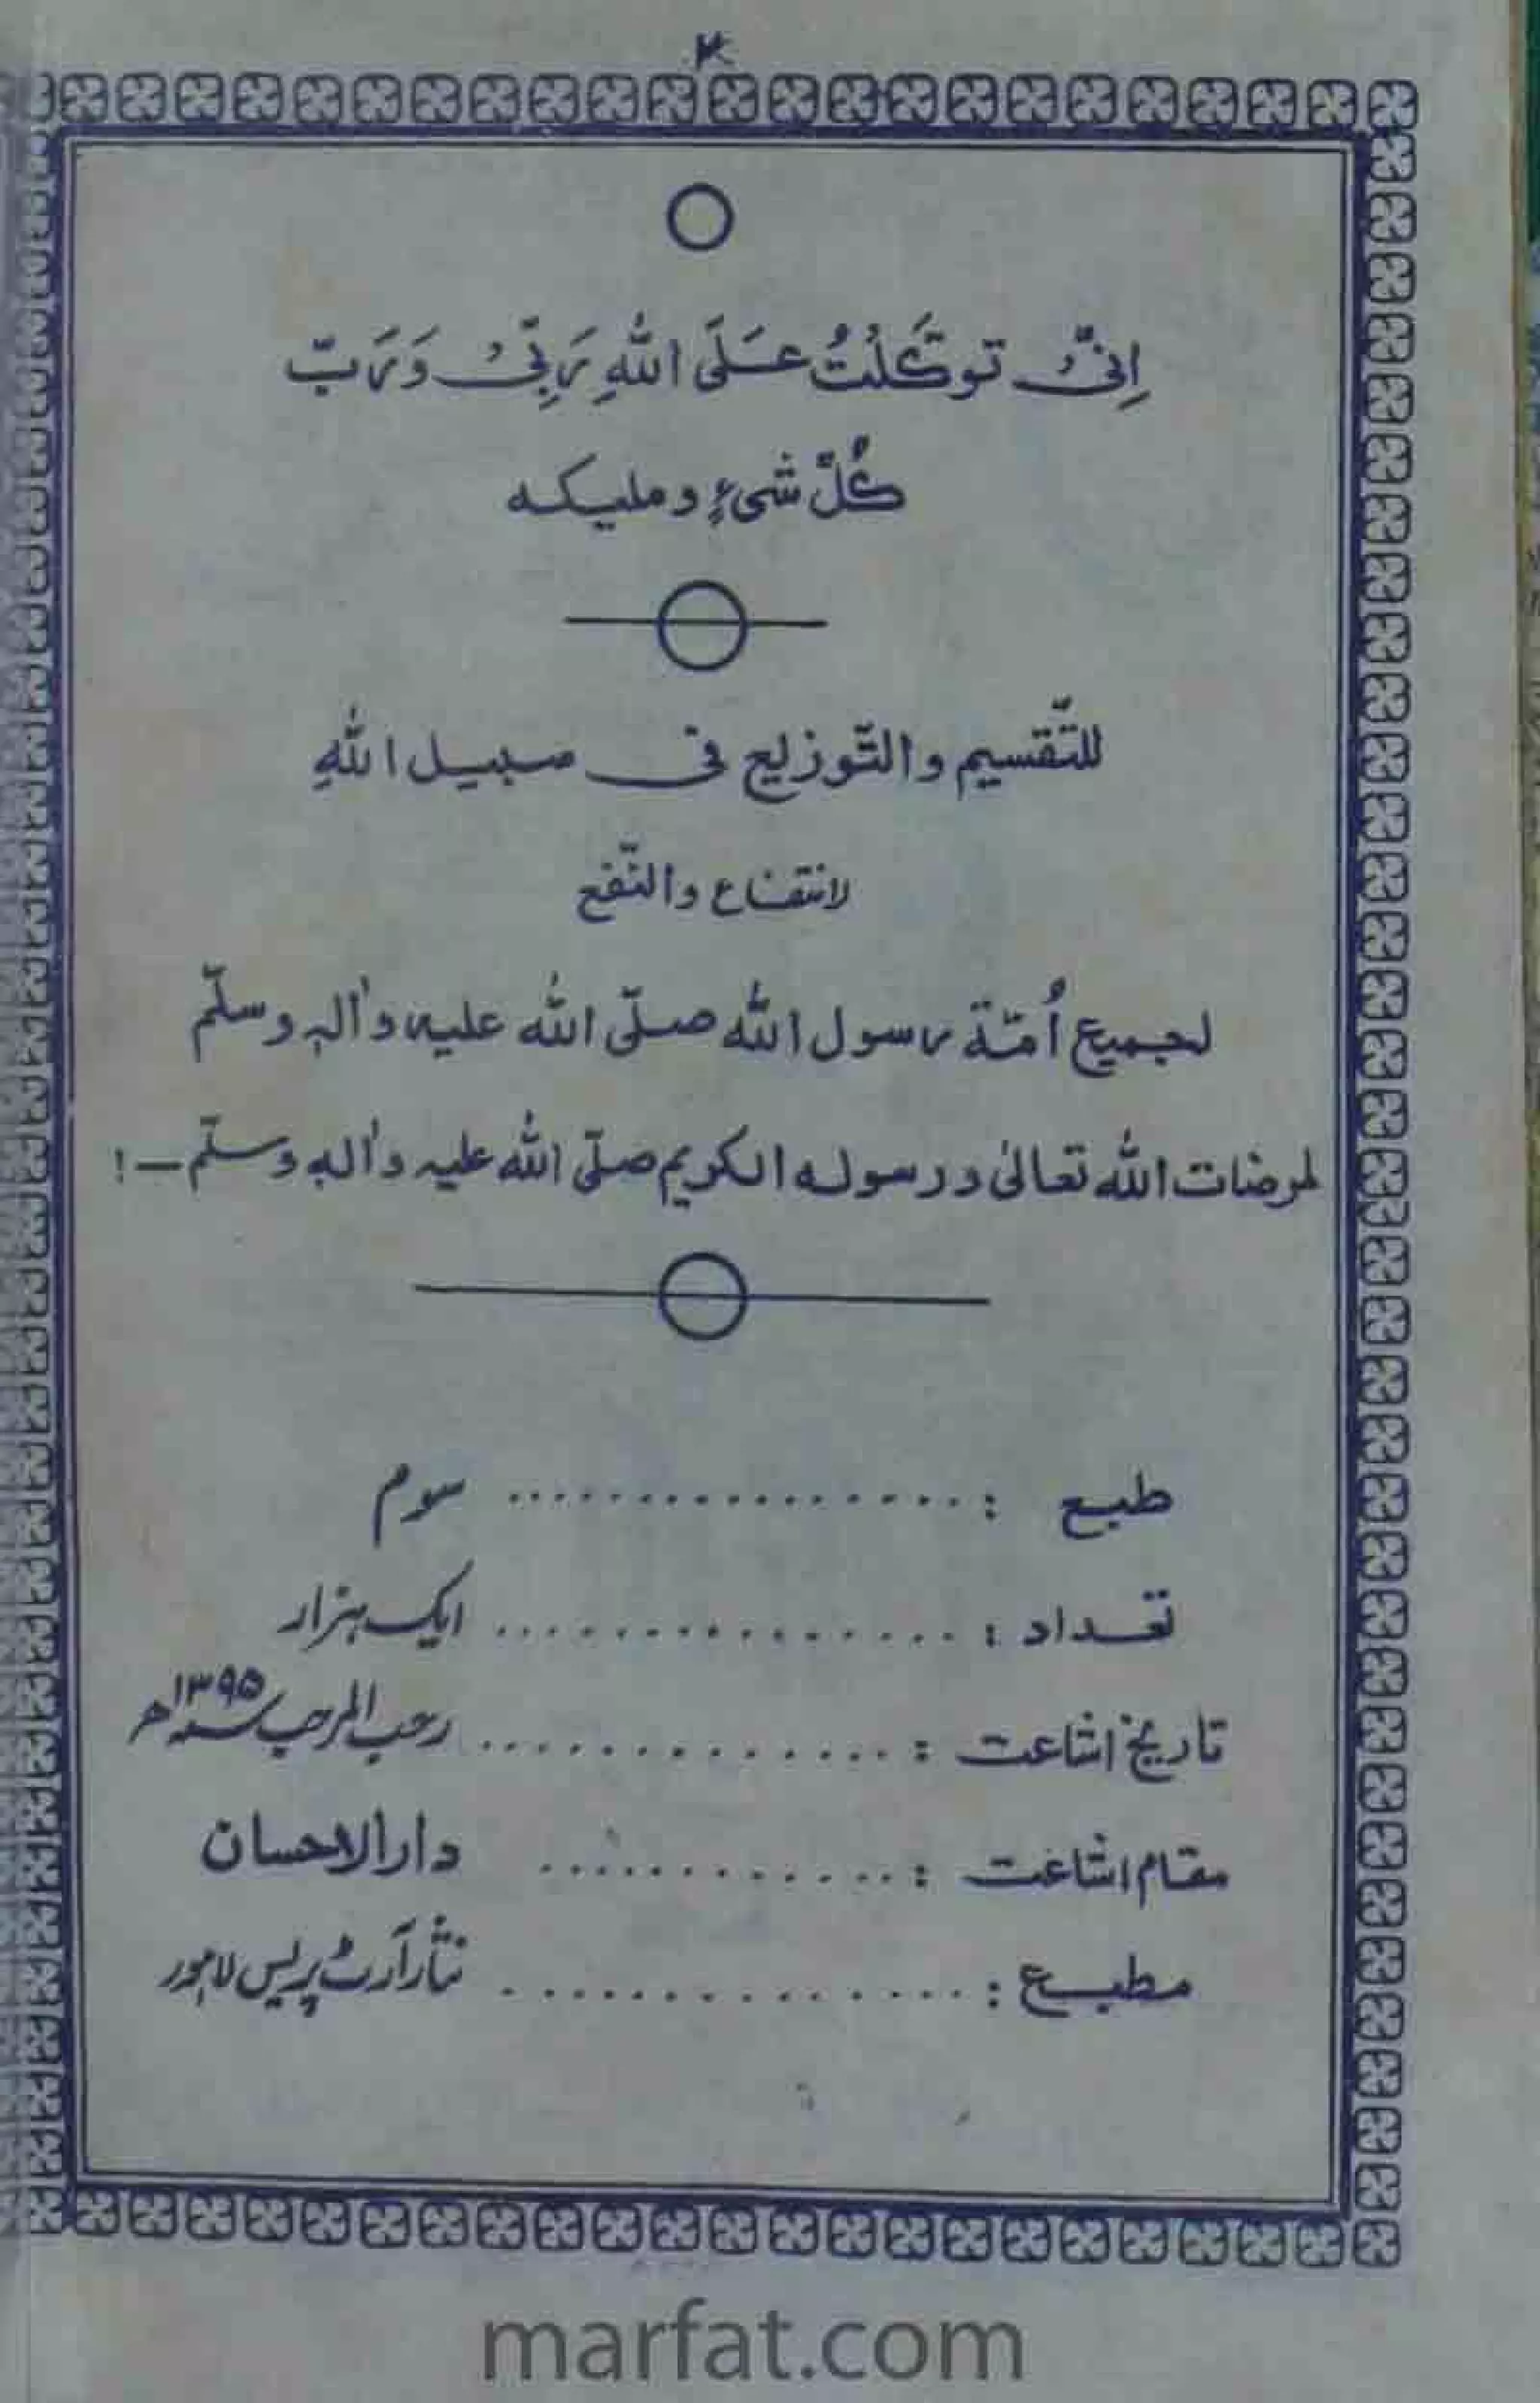 ۲
اِنِّیْ توکَّلْتُ عَلَی اللّٰهِ رَبِّیْ وَرَبِّ
کُلِّ شَیْءٍ وملیکه
للتّقسیم والتّوزیع فی سبیل اللّٰهِ
لانتفاع والنّفع
لجمیع اُمّة رسول اللّٰه صلّی اللّٰه علیه واٰلهٖ وسلّم
لمرضات اللّٰه تعالیٰ ورسوله الکریم صلّی اللّٰه علیه واٰلهٖ وسلّم — !
طبع : .................. سوم
تعداد : ................ ایک ہزار
تاریخ اشاعت : ............... رجب المرجب سنہ ۱۳۹۵ھ
مقام اشاعت : ............. دارالاحسان
مطبع : ................ نثار آرٹ پریس لاہور
marfat.com